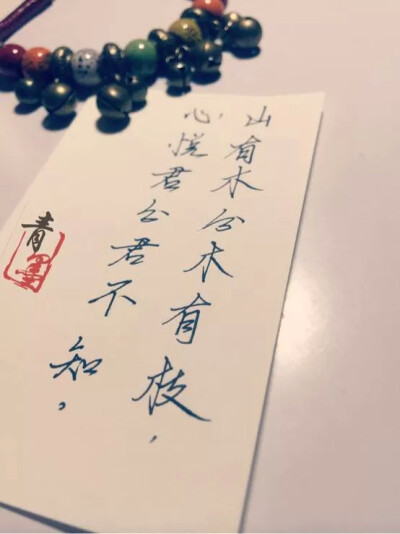 山有木兮木有枝，
心悦君兮君不知。
青墨